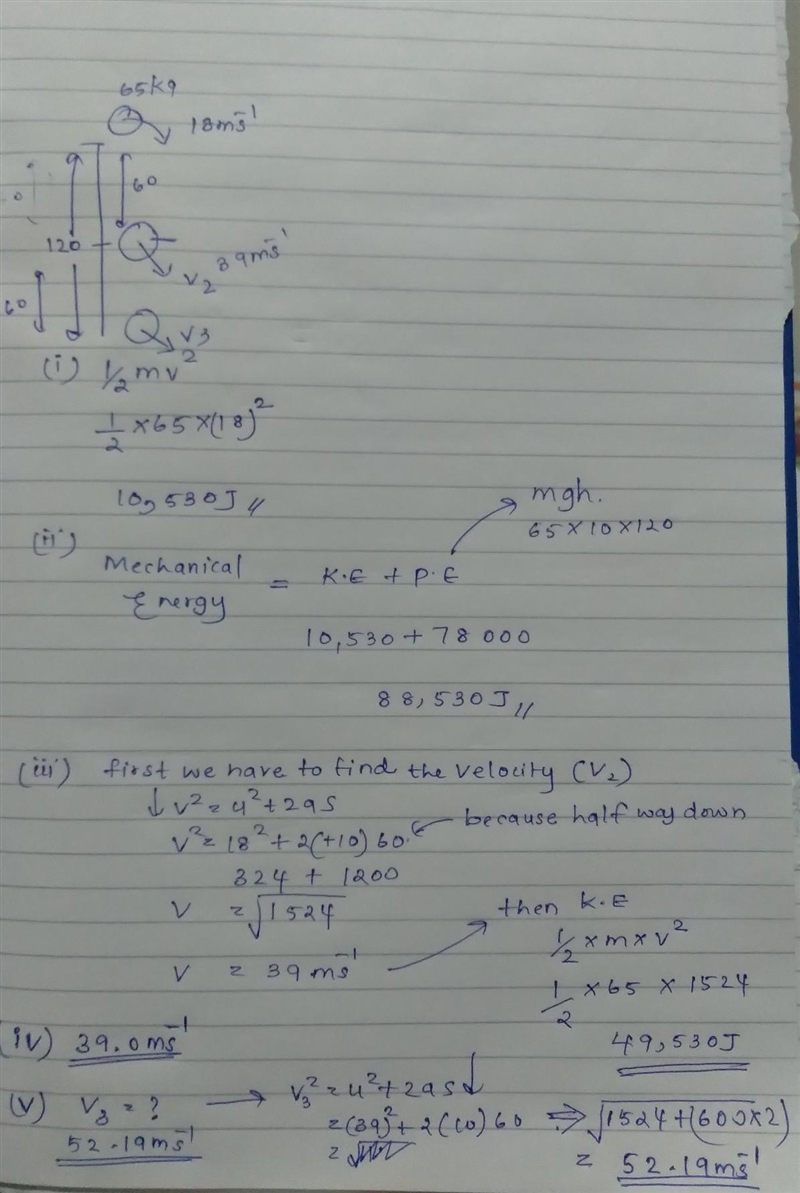 65kg
18ms⁻¹
60
120
V₂ 39ms⁻¹
60
V3
(i) ½mv²
½ × 65 × (18)²
10,530J //
(ii)
Mechanical Energy = K.E + P.E → mgh.
65 × 10 × 120
10,530 + 78 000
88,530J //
(iii) first we have to find the velocity (V₂)
↓ v² = u² + 2as
v² = 18² + 2(+10) 60. ← because half way down
324 + 1200
V = √1524
V = 39 ms⁻¹ → then K.E
½ × m × v²
½ × 65 × 1524
49,530J
(iv) 39.0ms⁻¹
(v) V₃ = ? → V₃² = u² + 2as ↓
52.19ms⁻¹
= (39)² + 2(10) 60 ⇒ √1524 + (600×2)
= √
= 52.19ms⁻¹